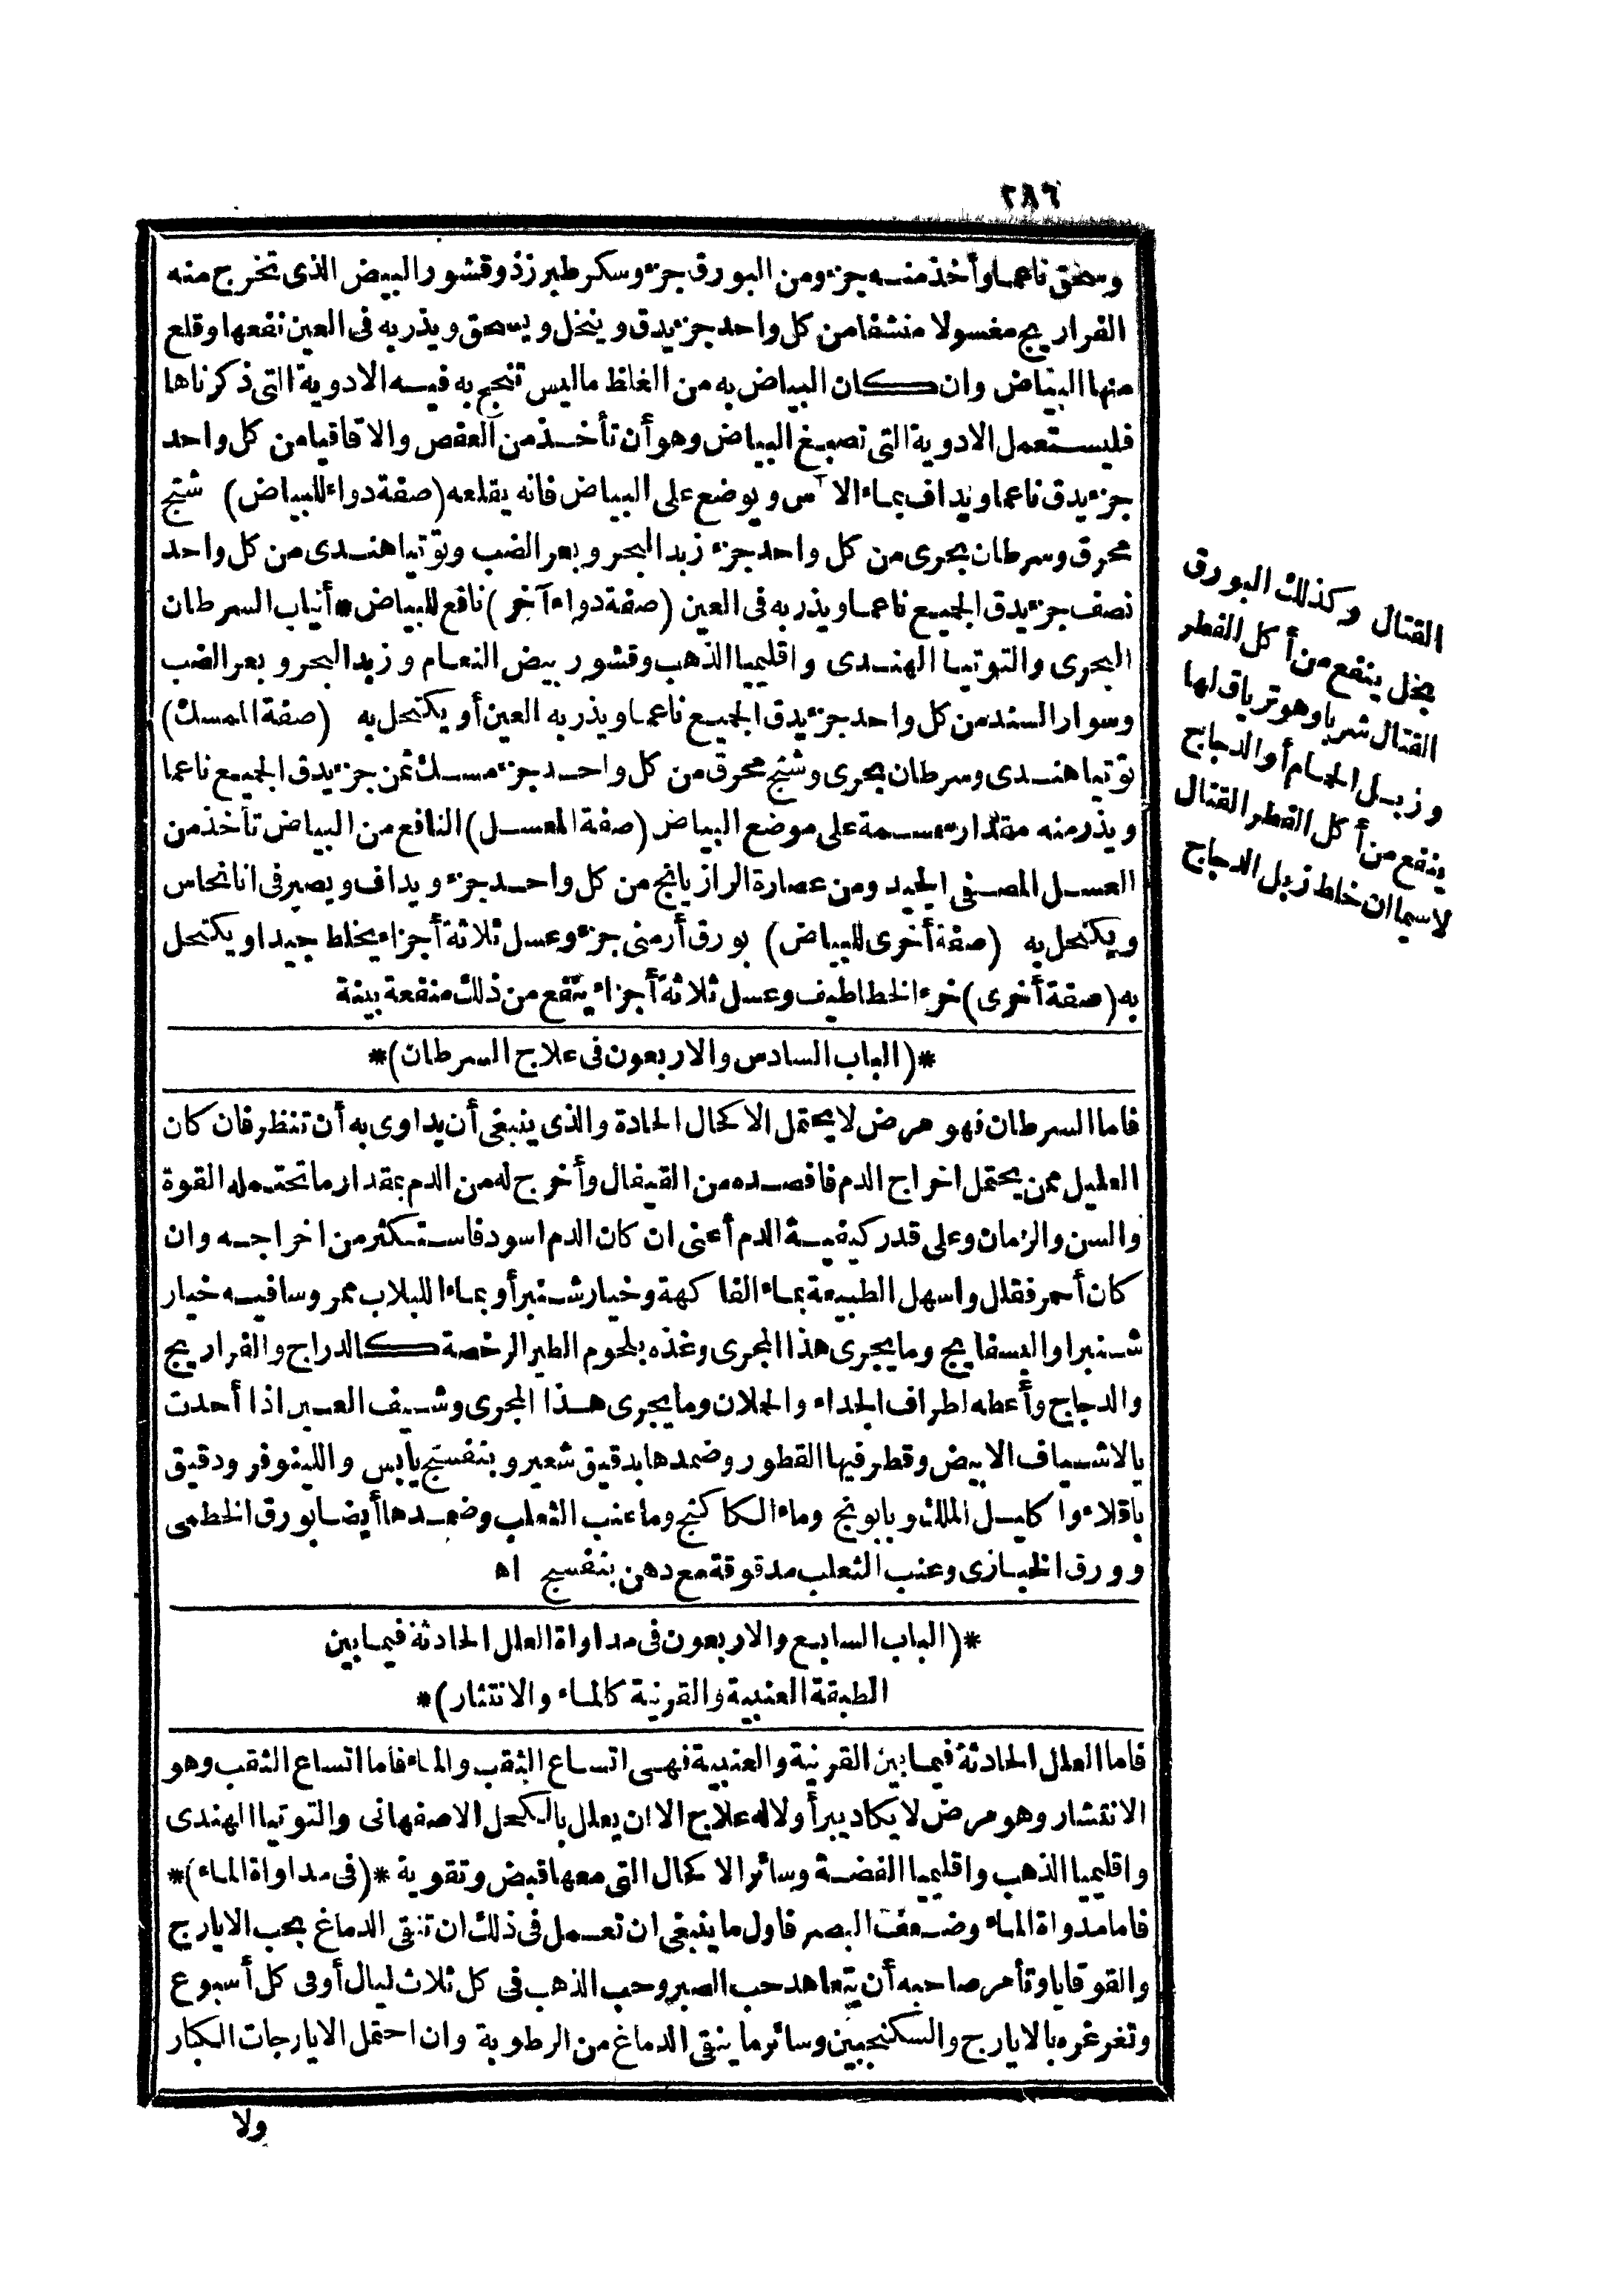 ٢٨٦
وسحق ناعما وأخذ منه جزء ومن البورق جزء وسكر طبرزذ وقشور البيض الذى تخرج منه
الفراريج مغسولا منشفا من كل واحد جزء يدق وينخل ويسحق ويذر به فى العين نفعها وقلع
منها البياض وان كان البياض به من الغلظ ما ليس تنجح به فيه الادوية التى ذكرناها
فليستعمل الادوية التى تصبغ البياض وهو أن تأخذ من العفص والاقاقيا من كل واحد
جزء يدق ناعما ويداف بماء الآس ويوضع على البياض فانه يقلعه (صفة دواء للبياض) شنج
محرق وسرطان بحرى من كل واحد جزء زبد البحر وبعر الضب وتوتيا هندى من كل واحد
نصف جزء يدق الجميع ناعما ويذر به فى العين (صفة دواء آخر) نافع للبياض * أنياب السرطان
البحرى والتوتيا الهندى واقليميا الذهب وقشور بيض النعام وزبد البحر وبعر الضب
وسوار السند من كل واحد جزء يدق الجميع ناعما ويذر به العين أو يكتحل به (صفة الممسك)
توتيا هندى وسرطان بحرى وشنج محرق من كل واحد جزء مسك ثمن جزء يدق الجميع ناعما
ويذر منه مقدار سمسمة على موضع البياض (صفة المعسل) النافع من البياض تأخذ من
العسل المصفى الجيد ومن عصارة الرازيانج من كل واحد جزء ويداف ويصير فى انا نحاس
ويكتحل به (صفة أخرى للبياض) بورق أرمنى جزء وعسل ثلاثة أجزاء يخلط جيدا ويكتحل
به (صفة أخرى) خرء الخطاطيف وعسل ثلاثة أجزاء ينتفع من ذلك منفعة بينة
*(الباب السادس والاربعون فى علاج السرطان)*
فاما السرطان فهو مرض لا يحتمل الاكحال الحادة والذى ينبغى أن يداوى به أن تنظر فان كان
العليل ممن يحتمل اخراج الدم فافصده من القيفال وأخرج له من الدم بمقدار ما تحتمله القوة
والسن والزمان وعلى قدر كيفية الدم أعنى ان كان الدم اسود فاستكثر من اخراجه وان
كان أحمر فقلل واسهل الطبيعة بماء الفاكهة وخيار شنبر أو بماء اللبلاب ممروسا فيه خيار
شنبر او البسفايج وما يجرى هذا المجرى وغذه بلحوم الطير الرخصة كالدراج والفراريج
والدجاج وأعطه اطراف الجداء والحملان وما يجرى هذا المجرى وشيف العين اذا أحدت
بالاشياف الابيض وقطر فيها القطور وضمدها بدقيق شعير وبنفسج يابس واللينوفر ودقيق
باقلاء واكليل الملك وبابونج وماء الكاكنج وما عنب الثعلب وضمدها أيضا بورق الخطمى
وورق الخبازى وعنب الثعلب مدقوقة مع دهن بنفسج اه
*(الباب السابع والاربعون فى مداواة العلل الحادثة فيما بين
الطبقة العنبية والقرنية كالماء والانتشار)*
فاما العلل الحادثة فيما بين القرنية والعنبية فهى اتساع الثقب والماء فأما اتساع الثقب وهو
الانتشار وهو مرض لا يكاد يبرأ ولا له علاج الا ان يعلل بالكحل الاصفهانى والتوتيا الهندى
واقليميا الذهب واقليميا الفضة وسائر الاكحال التى معها قبض وتقوية *(فى مداواة الماء)*
فاما مدواة الماء وضعف البصر فاول ما ينبغى ان تعمل فى ذلك ان تنقى الدماغ بحب الايارج
والقوقايا وتأمر صاحبه أن يتعاهد حب الصبر وحب الذهب فى كل ثلاث ليال أو فى كل أسبوع
وتغرغره بالايارج والسكنجبين وسائر ما ينقى الدماغ من الرطوبة وان احتمل الايارجات الكبار
ولا
القتال وكذلك البورق
بخل ينفع من أكل الفطر
القتال شربا وهو ترياق لها
وزبل الحمام أو الدجاج
ينفع من أكل القطر القتال
لا سيما ان خلط زبل الدجاج